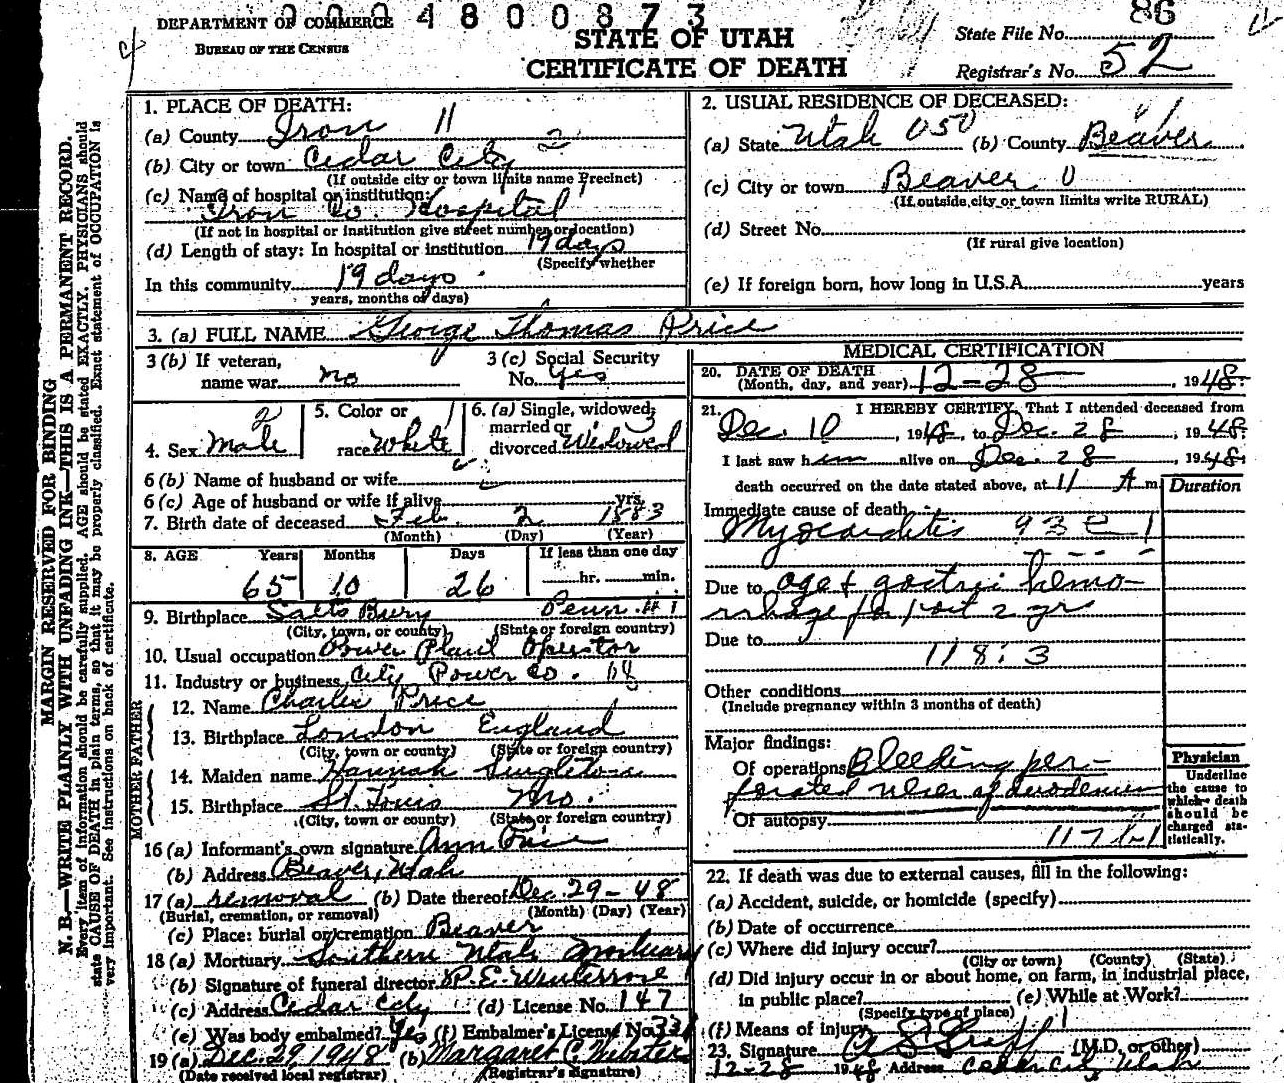 0004800873
DEPARTMENT OF COMMERCE
BUREAU OF THE CENSUS
STATE OF UTAH
CERTIFICATE OF DEATH
State File No. 86
Registrar's No. 52
MARGIN RESERVED FOR BINDING
N. B.—WRITE PLAINLY WITH UNFADING INK—THIS IS A PERMANENT RECORD.
Every item of information should be carefully supplied. AGE should be stated EXACTLY. PHYSICIANS should
state CAUSE OF DEATH in plain terms, so that it may be properly classified. Exact statement of OCCUPATION is
very important. See instructions on back of certificate.
1. PLACE OF DEATH:
(a) County Iron 11
(b) City or town Cedar City 2
(If outside city or town limits name Precinct)
(c) Name of hospital or institution:
Iron Co. Hospital
(If not in hospital or institution give street number or location)
(d) Length of stay: In hospital or institution 19 days
(Specify whether
In this community 19 days
years, months or days)
2. USUAL RESIDENCE OF DECEASED:
(a) State Utah 050 (b) County Beaver
(c) City or town Beaver 0
(If outside city or town limits write RURAL)
(d) Street No.
(If rural give location)
(e) If foreign born, how long in U.S.A. years
3. (a) FULL NAME George Thomas Price
3 (b) If veteran,
name war no
3 (c) Social Security
No. yes
4. Sex Male 2
5. Color or
race White 1
6. (a) Single, widowed, 3
married or
divorced Widowed
6 (b) Name of husband or wife
6 (c) Age of husband or wife if alive yrs.
7. Birth date of deceased Feb. 2 1883
(Month) (Day) (Year)
8. AGE Years Months Days If less than one day
65 10 26 hr. min.
9. Birthplace Salts Bury Penn.
(City, town, or county) (State or foreign country)
10. Usual occupation Power Plant Operator
11. Industry or business City Power Co.
FATHER
12. Name Charlie Price
13. Birthplace London England
(City, town or county) (State or foreign country)
MOTHER
14. Maiden name Hannah Singleton
15. Birthplace St. Louis Mo.
(City, town or county) (State or foreign country)
16 (a) Informant's own signature Ann Price
(b) Address Beaver, Utah
17 (a) removal (b) Date thereof Dec. 29-48
(Burial, cremation, or removal) (Month) (Day) (Year)
(c) Place: burial or cremation Beaver
18 (a) Mortuary Southern Utah Mortuary
(b) Signature of funeral director P.E. Winterrose
(c) Address Cedar City (d) License No. 147
(e) Was body embalmed? Yes (f) Embalmer's License No. 331
19 (a) Dec. 29, 1948 (b) Margaret C. Webster
(Date received local registrar) (Registrar's signature)
MEDICAL CERTIFICATION
20. DATE OF DEATH
(Month, day, and year) 12-28, 1948.
21. I HEREBY CERTIFY, That I attended deceased from
Dec. 10, 1948, to Dec. 28, 1948.
I last saw him alive on Dec. 28, 1948.
death occurred on the date stated above, at 11 A m.
Duration
Immediate cause of death
Myocarditis 93 c 1
Due to age & gastric hemo-
rrhage for past 2 yrs
Due to
118:3
Other conditions
(Include pregnancy within 3 months of death)
Major findings:
Of operations Bleeding per-
forated ulcer of duodenum
Of autopsy
Physician
Underline
the cause to
which death
should be
charged sta-
tistically.
22. If death was due to external causes, fill in the following:
(a) Accident, suicide, or homicide (specify)
(b) Date of occurrence
(c) Where did injury occur?
(City or town) (County) (State)
(d) Did injury occur in or about home, on farm, in industrial place,
in public place? (e) While at Work?
(Specify type of place)
(f) Means of injury
23. Signature (M.D. or other)
12-28 1948 Address Cedar City Utah